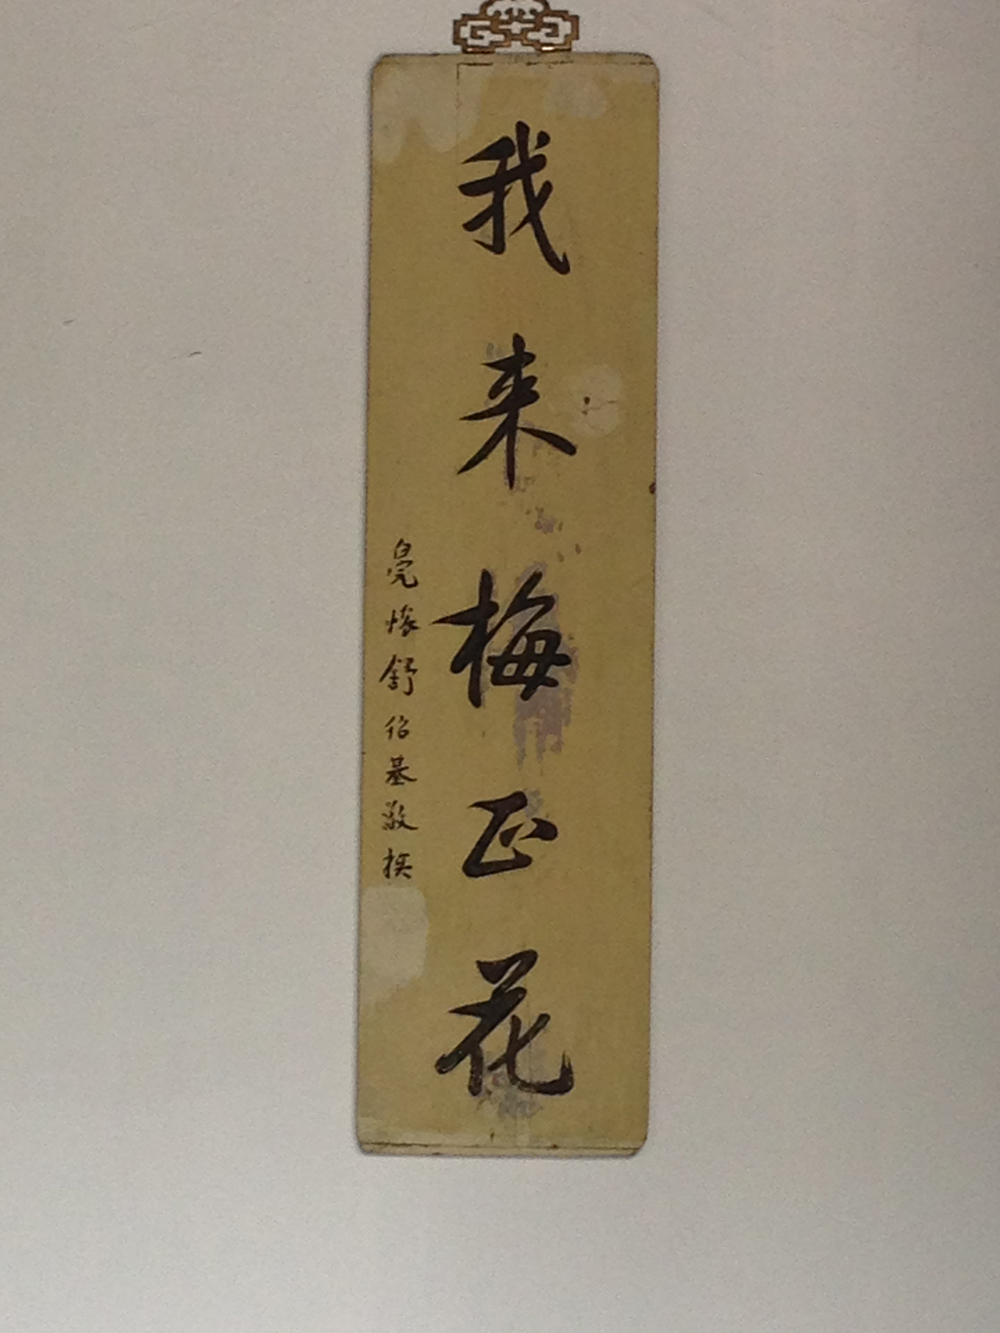 我来梅正花
舒伯基敬撰